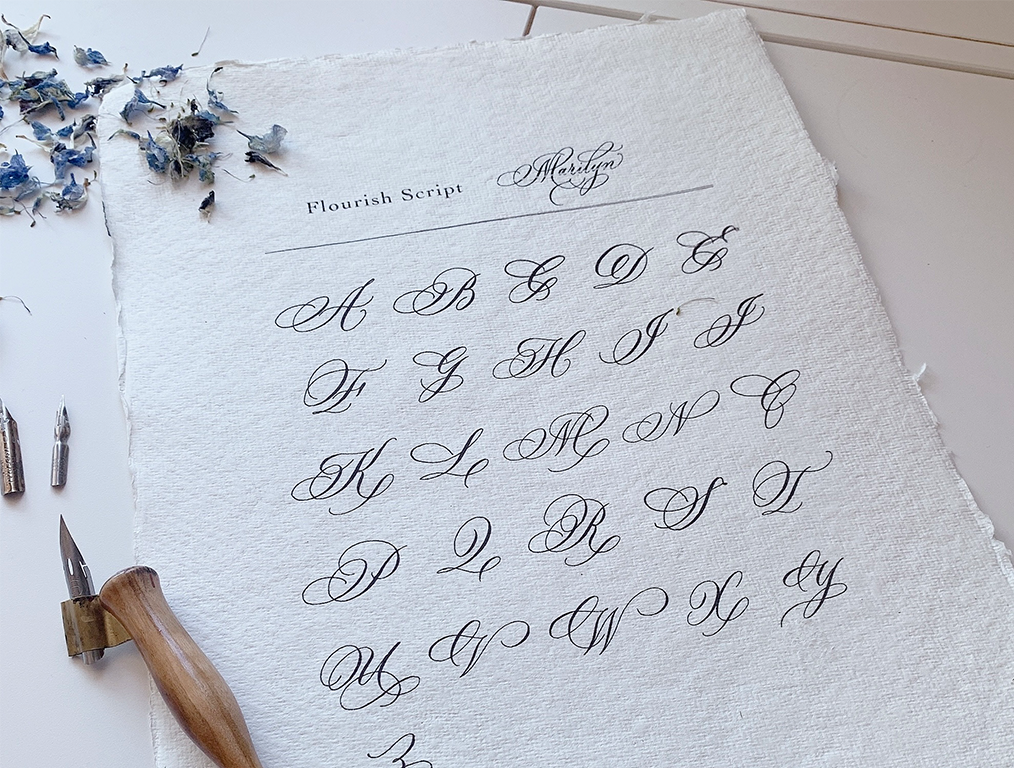 Flourish Script Marilyn
A B C D E
F G H I J
K L M N O
P Q R S T
U V W X Y
Z